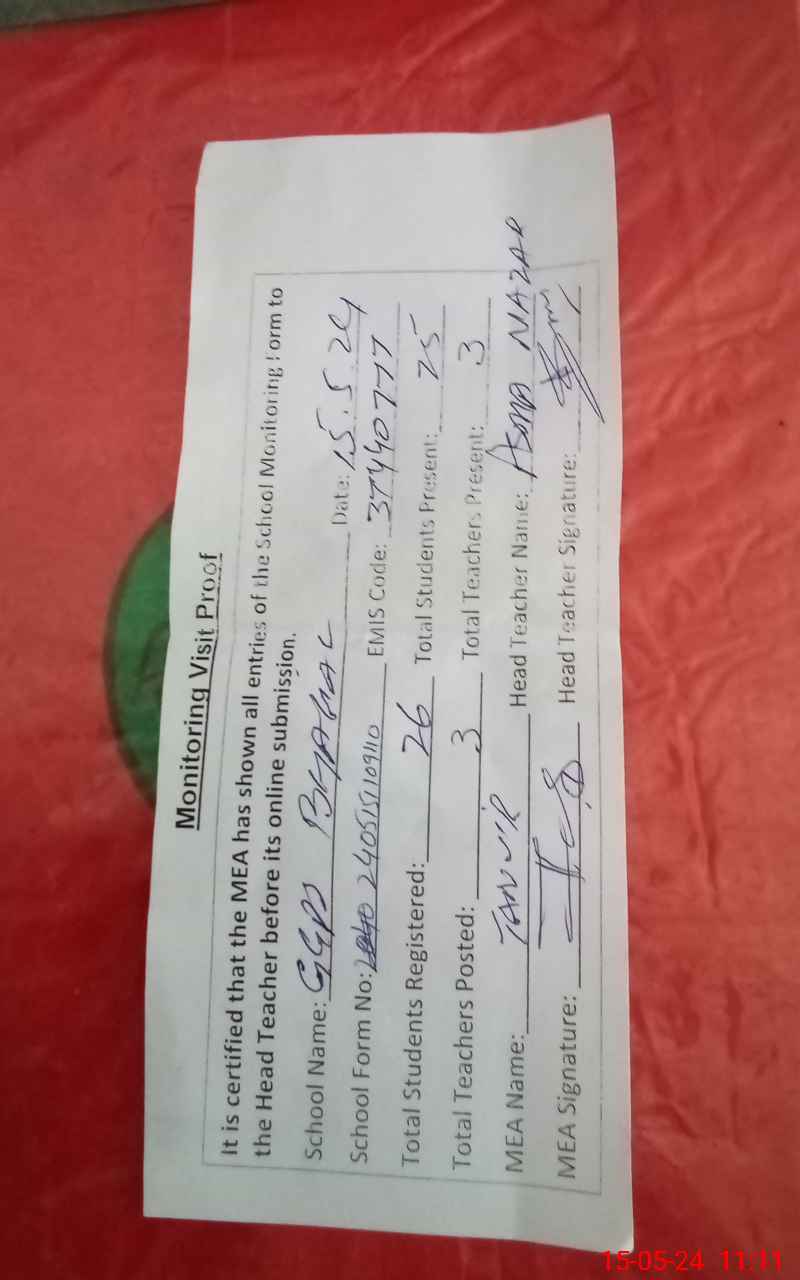 Monitoring Visit Proof
It is certified that the MEA has shown all entries of the School Monitoring Form to
the Head Teacher before its online submission.
School Name: GGPS Date: 15.5.24
School Form No: 240515109110 EMIS Code: 37440777
Total Students Registered: 26 Total Students Present: 25
Total Teachers Posted: 3 Total Teachers Present: 3
MEA Name: TANVIR Head Teacher Name: ASMA NAZAR
MEA Signature: Head Teacher Signature:
15-05-24 11:11